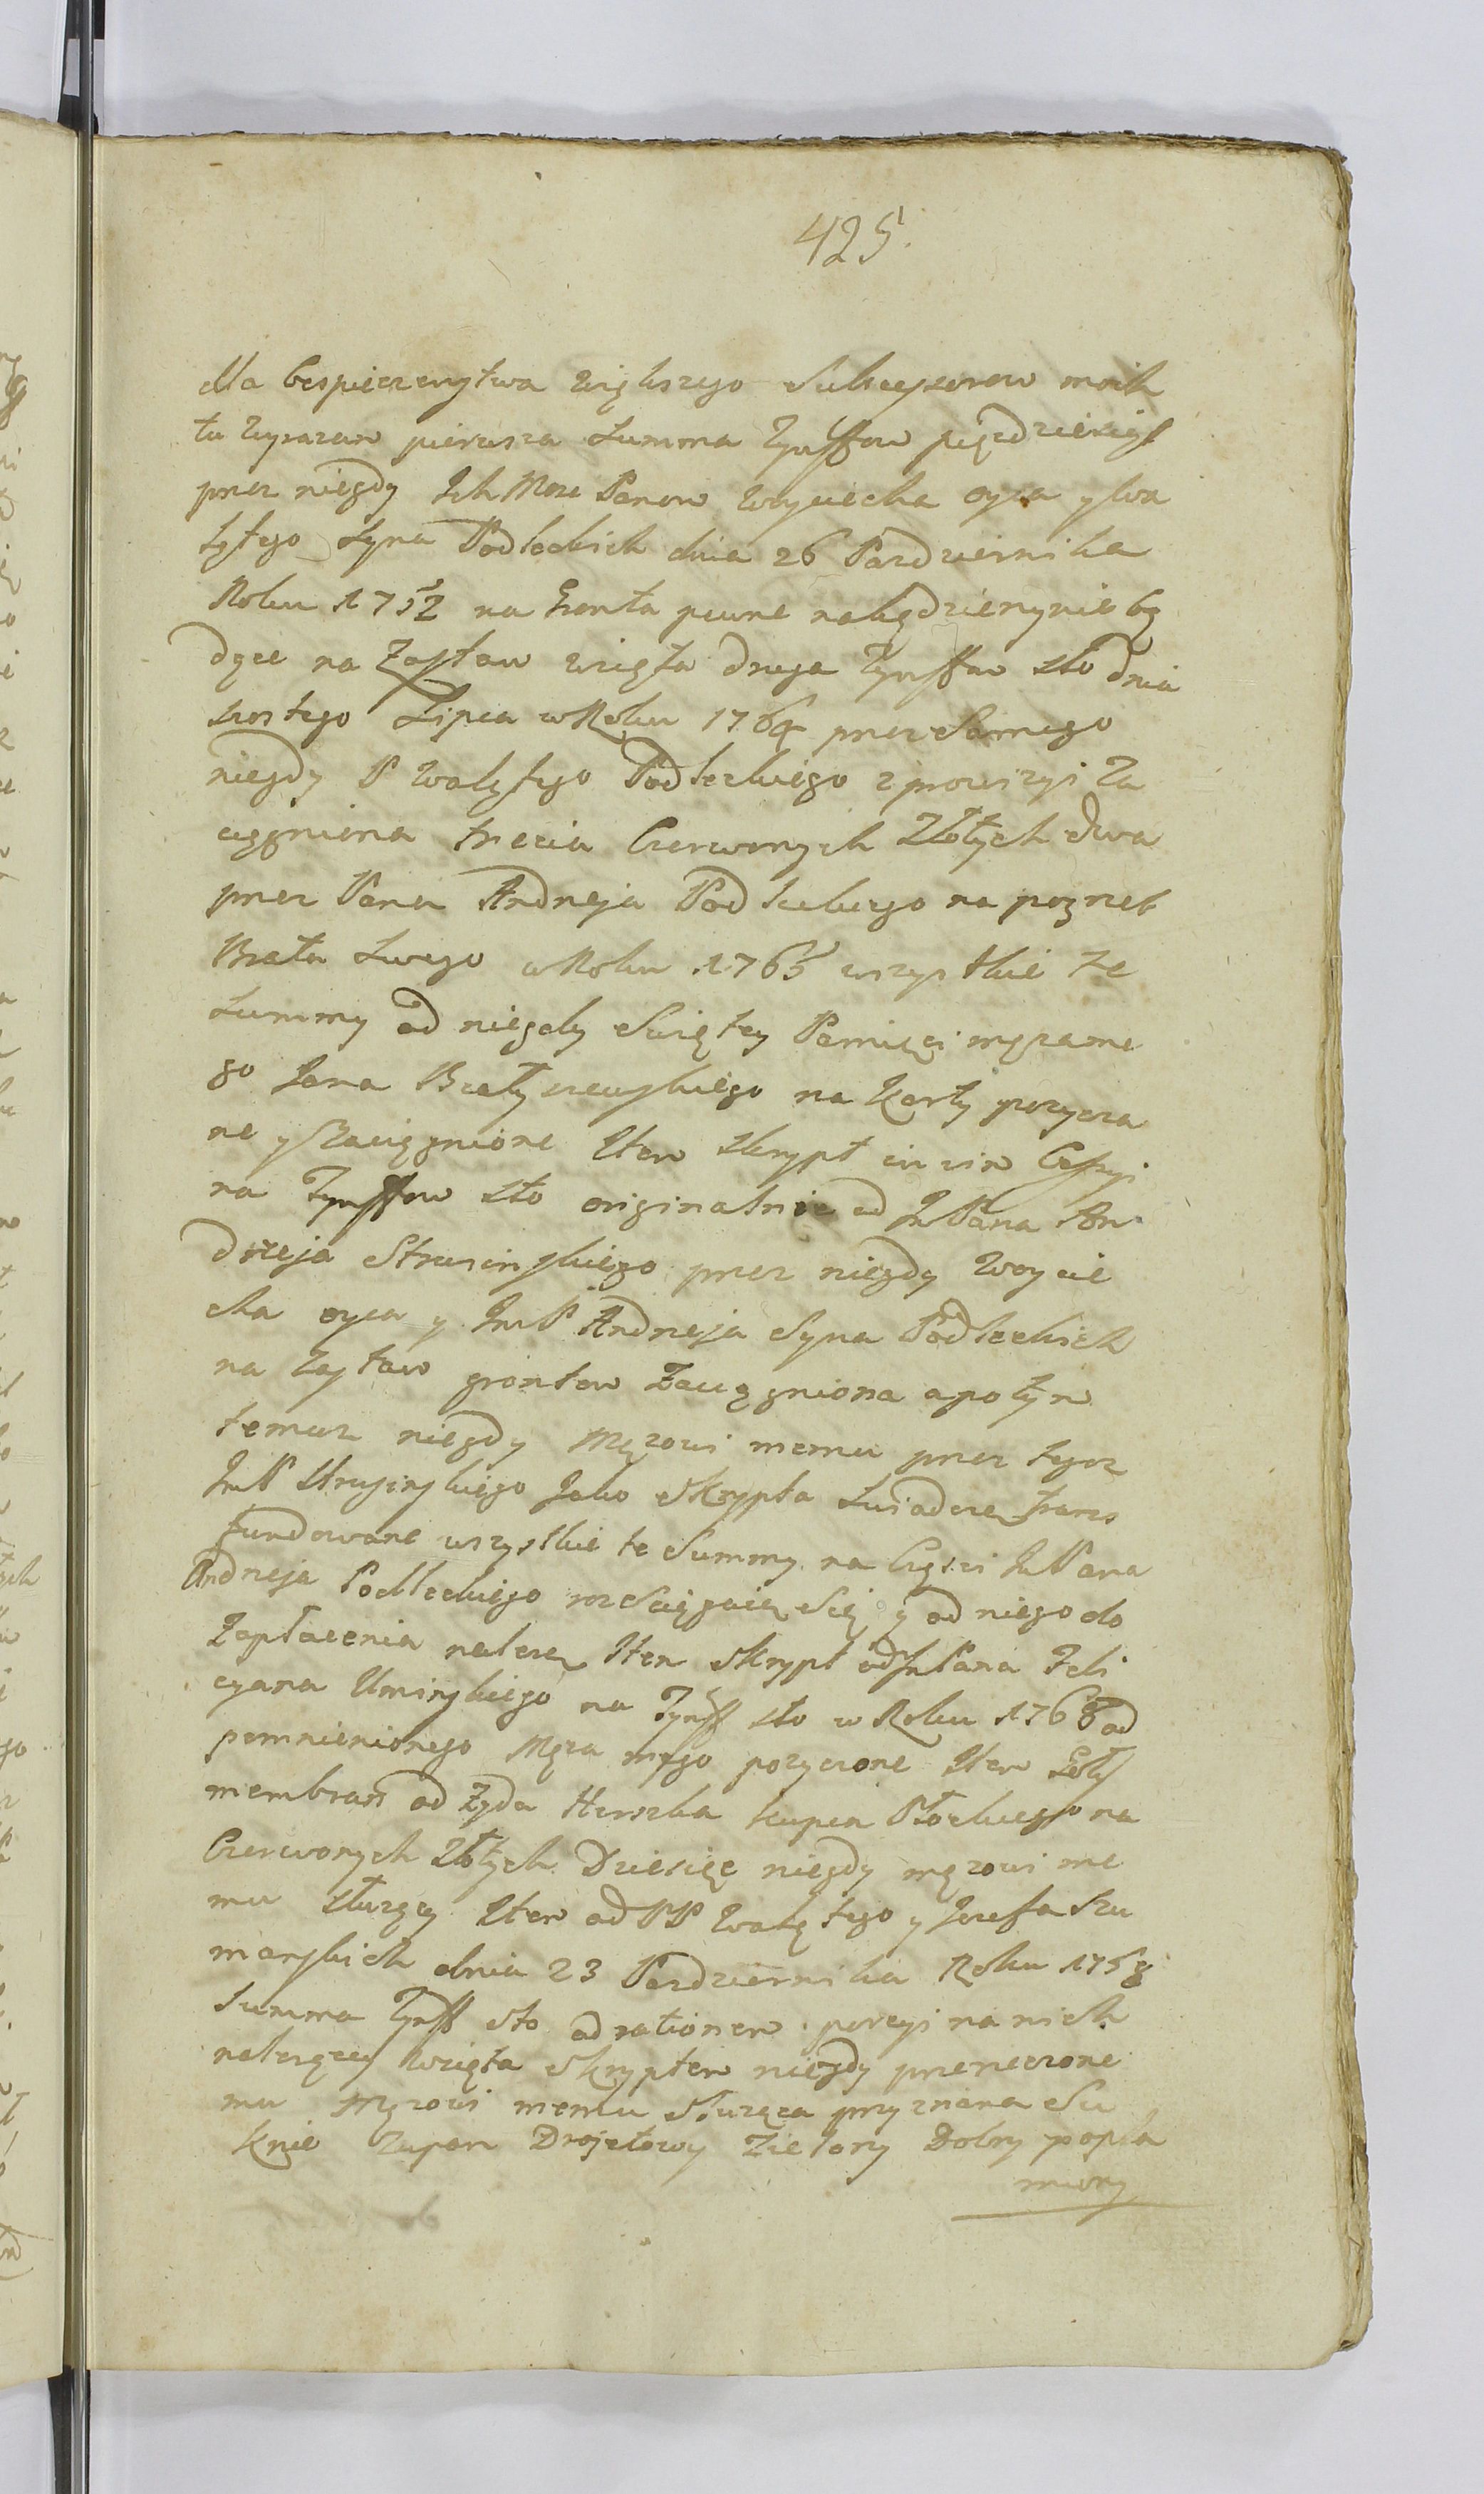 425.
dla bespieczenstwa większego Sukcessorow moich
tu wyrazam pierwsza Summa Tynffow pięcdziesiąt
przez niegdy Ich Mosc Panow Woyciecha oyca y Wa
lętego Syna Podleckich dnia 26 Pazdziernika
Roku 1752 na Gronta pewne na będzienynie bę
dące na Zastaw wzięta druga Tynffow sto dnia
szostego Lipca w Roku 1764 przez Samego
niegdy P Walętego Podleckiego z prowizyi za
ciągniona trzecia Czerwonych Złotych dwa
przez Pana Andrzeja Podleckiego na pogrzeb
Brata Swego w Roku 1765 wszystkie te
Summy od niegdy Swiętey Pamięci męza me
go Jana Białyszewskiego na Karty pozycza
ne y Zaciągnione Item Skrypt cum Cessyi
na Tynffow sto originalnie od JmPana An
drzeja Strusinskiego przez niegdy Woycie
cha oyca y JmP Andrzeja Syna Podleckich
na Zastaw grontow Zaciągniona a potym
temuz niegdy Męzowi memu przez tegoz
JmP Strusinskiego Jako Skrypta Swiadczą trans
fundowane wszystkie te Summy na Częsci JmPana
Andrzeja Podleckiego rozSciągaią Się y od niego do
Zapłacenia nalezą Item Skrypt od JmPana Feli
cyana Uminskiego na Tynff sto w Roku 1768 od
pomnienionego Męza mego pozyczone Item
membran od Zyda Herszka kupca Płockiego na
Czerwonych Złotych Dziesięc niegdy męzowi me
mu słuzący Item od PP Walętego y Jozefa Szu
manskich dnia 23 Pazdziernika Roku 1768
Summa Tynff sto ad rationem porcyi na nich
nalezącey wzięta Skryptem niegdy przerzeczone
mu Męzowi memu Słuząca przyznana Su
knie Zupan Drojetowy Zielony Dobry popla
miony